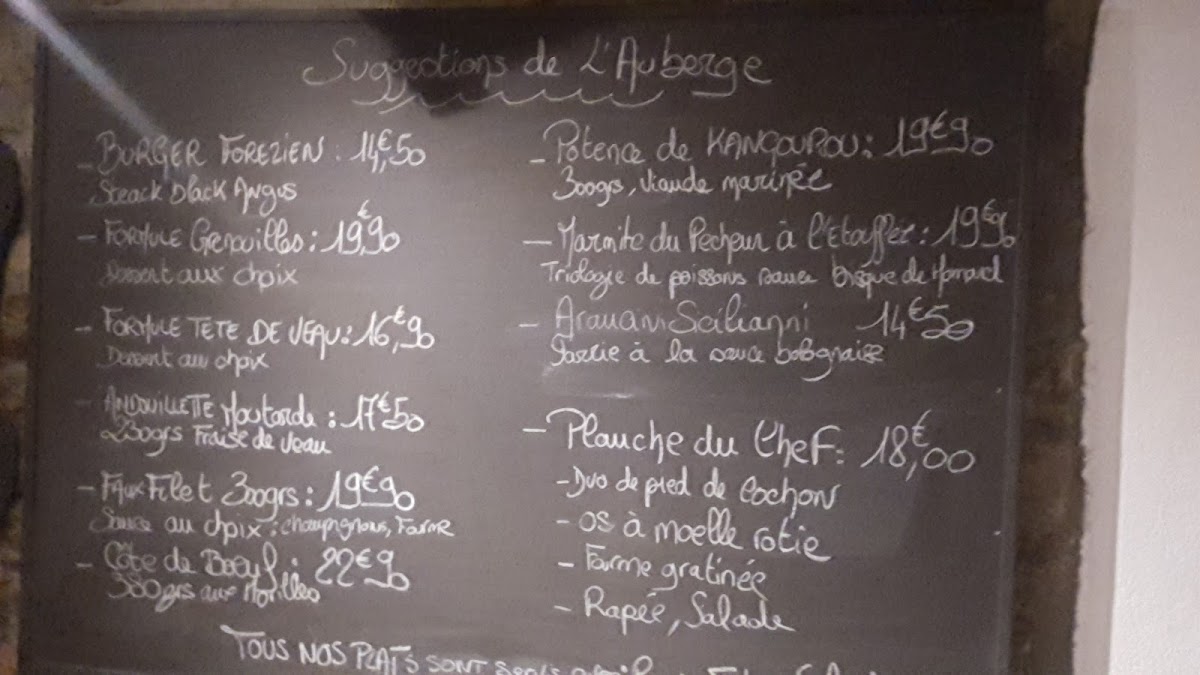 Suggestions de L'Auberge
- BURGER FOREZIEN : 14€50
Steack Black Angus
- FORMULE Grenouilles : 19€,90
Dessert aux choix
- FORMULE TETE DE VEAU : 16€,90
Dessert au choix
- ANDOUILLETTE Moutarde : 17€50
230grs Fraise de Veau
- Faux Filet 300grs : 19€90
Sauce au choix : champignons, Forme
- Côte de Boeuf : 22€90
380grs aux Morilles
- Potence de KANGOUROU : 19€90
300grs, Viande marinée
- Marmite du Pecheur à l'Etouffée : 19€90
Triologie de poissons sauce bisque de Homard
- Scilianni 14€50
à la sauce bolognaise
- Planche du Chef : 18€,00
- Duo de pied de Cochon
- OS à moelle rotie
- Forme gratinée
- Rapée, Salade
TOUS NOS PLATS SONT